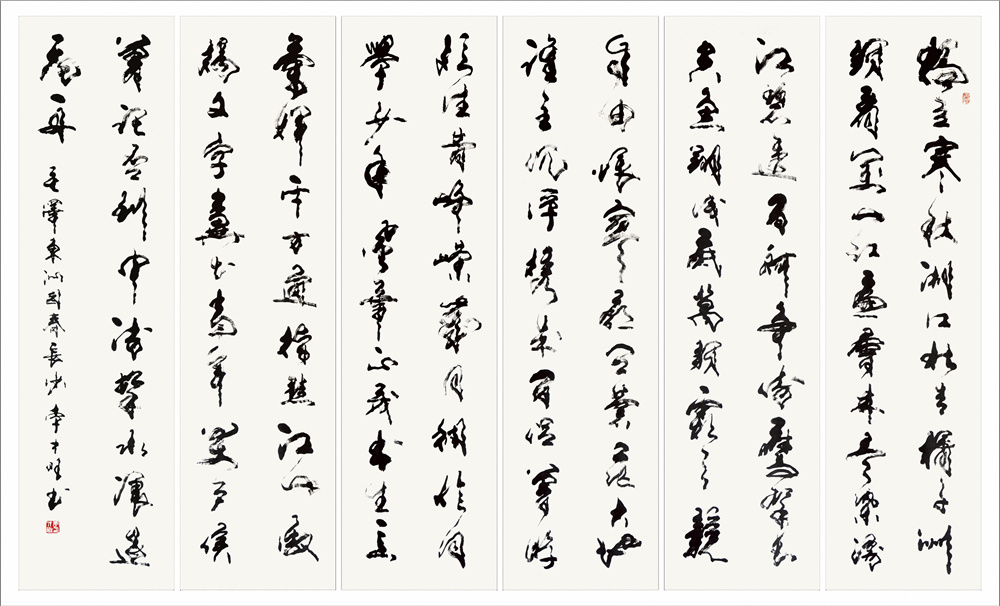 獨立寒秋湘江北去橘子洲
頭看萬山紅遍層林盡染漫
江碧透百舸爭流鷹擊長
空魚翔淺底萬類霜天競
自由悵寥廓問蒼茫大地
誰主沉浮攜來百侶曾游
憶往昔崢嶸歲月稠恰同
學少年風華正茂書生意
氣揮斥方遒指點江山激
揚文字糞土當年萬戶侯
曾記否到中流擊水浪遏
飛舟
毛澤東沁園春長沙李才旺书